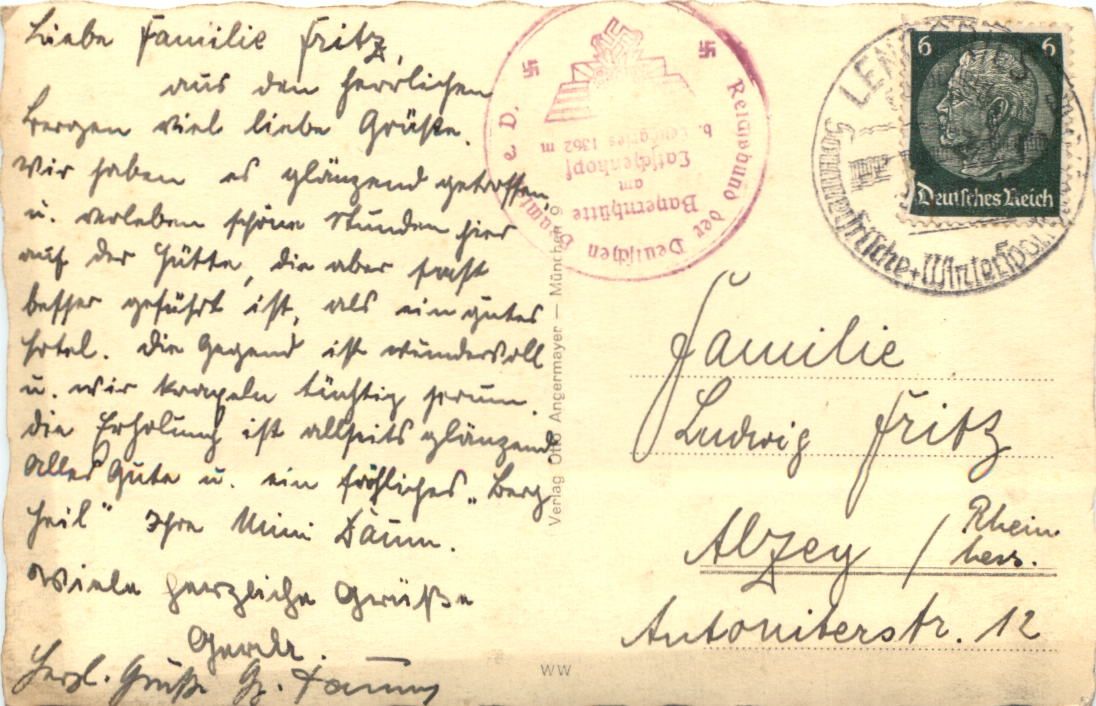 Liebe Familie Fritz,
aus den herrlichen
Bergen viel liebe Grüße.
Wir haben es glänzend getroffen,
u. verleben schöne Stunden hier
auf der Hütte, die aber fast
besser geführt ist, als ein gutes
Hotel. Die Gegend ist wundervoll
u. wir kraxeln tüchtig herum.
Die Erholung ist allseits glänzend
Alles Gute u. ein fröhliches „Berg
Heil" Ihre Mimi Daum.
Viele herzliche Grüße
Gerda.
Herzl. Grüße
Reichsbund der Deutschen Beamten e. D.
Bayernhütte
am
Latschenkopf
b. Lenggries 1362 m
Verlag Otto Angermayer — München 9
LENGGRIES
Sommerfrische + Wintersport
6 6
Deutsches Reich
Familie
Ludwig Fritz
Alzey / Rhein
hess.
Antoniterstr. 12
WW